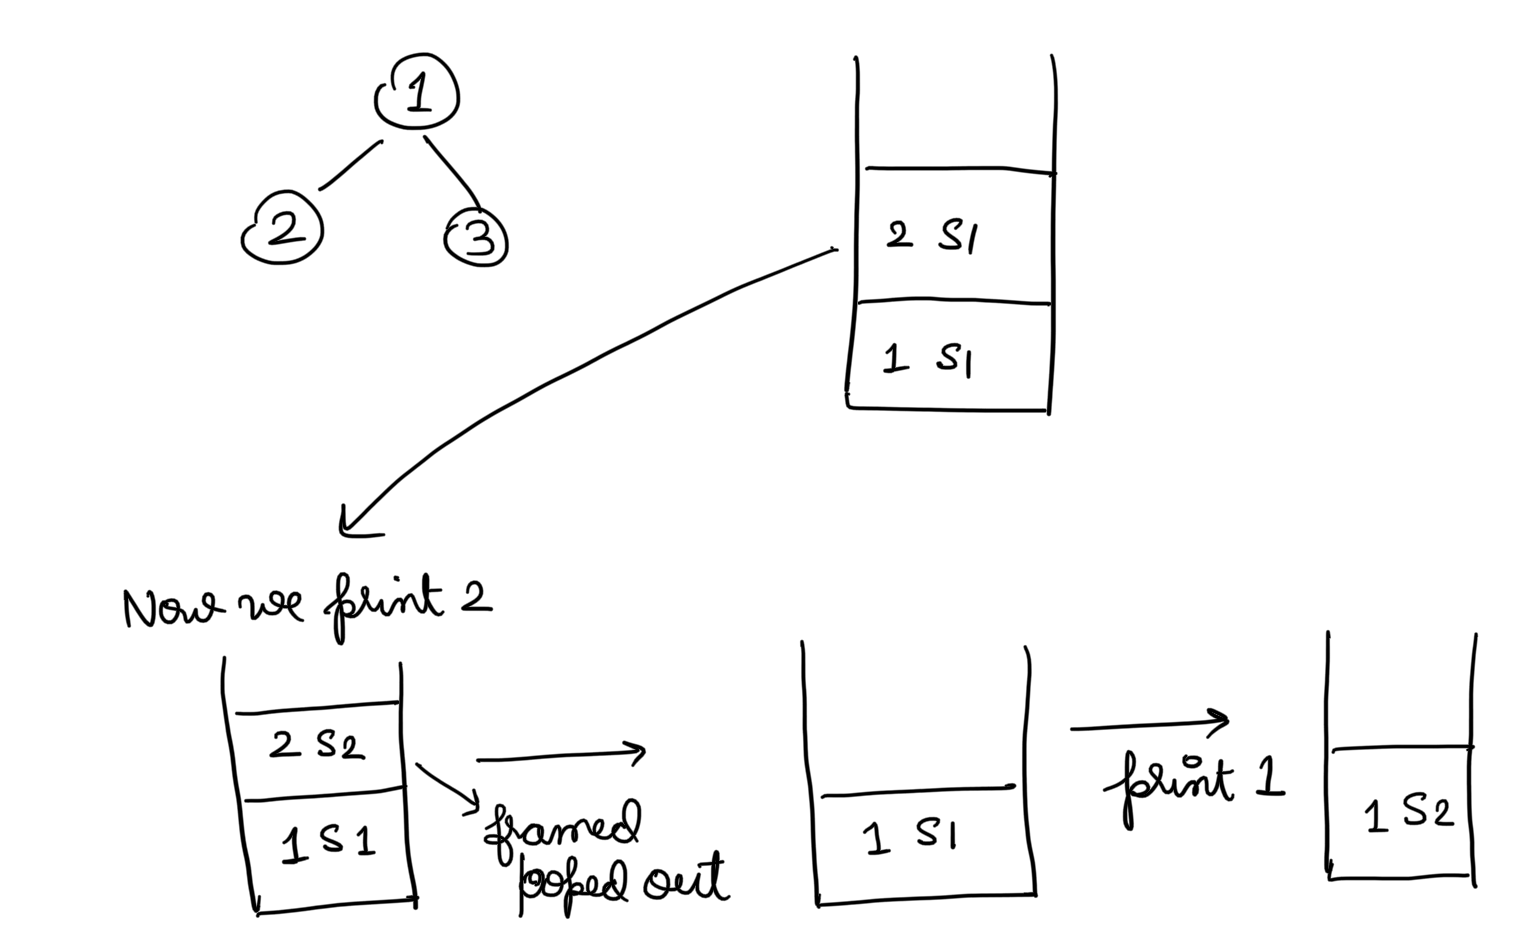 1
2
3
2 S1
1 S1
Now we print 2
2 S2
1 S1
framed
poped out
1 S1
print 1
1 S2